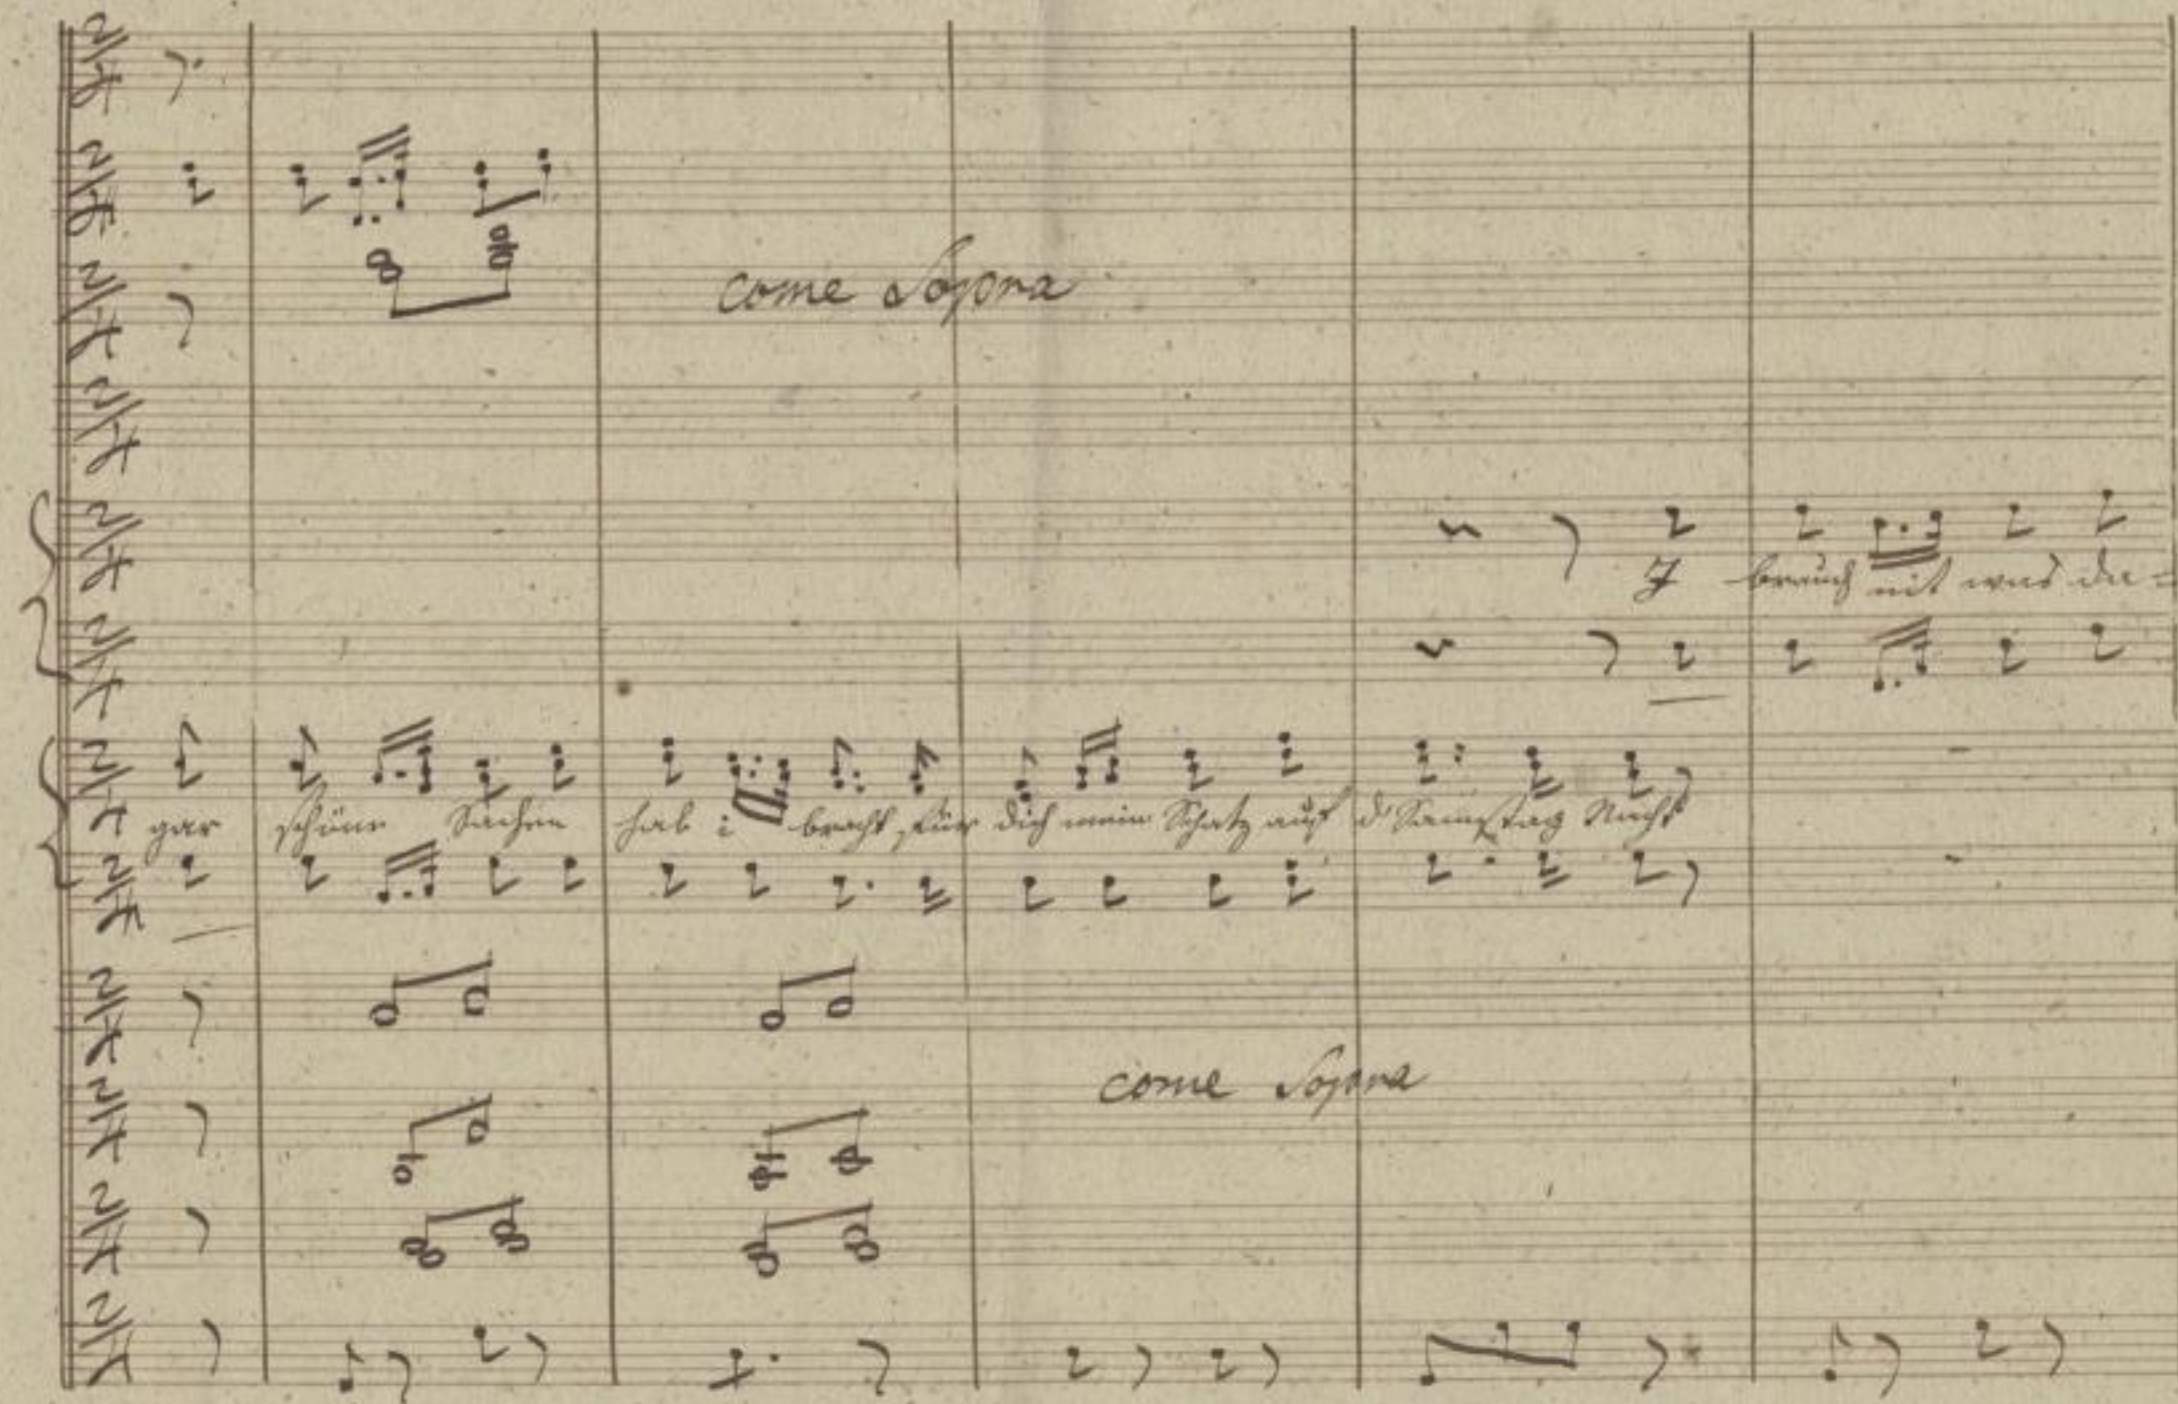 come Sopra
I brauch nit was da=
gar schöne Sachen hab i bracht für dich mein Schatz auf d Samstag Nacht
come Sopra